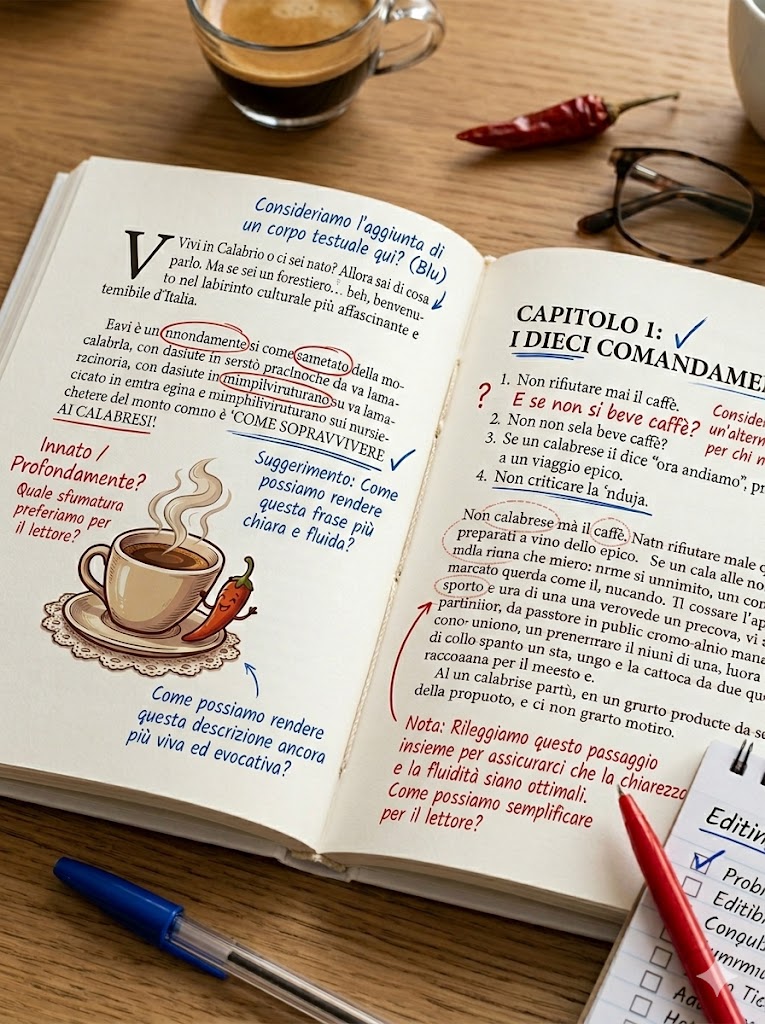 Consideriamo l'aggiunta di
un corpo testuale qui? (Blu)
V Vivi in Calabrio o ci sei nato? Allora sai di cosa
parlo. Ma se sei un forestiero... beh, benvenu-
to nel labirinto culturale più affascinante e
temibile d'Italia.
Eavi è un nnondamente si come sametato della mo-
calabrla, con dasiute in serstò praclnoche da va lama-
rzcinoria, con dasiute in mimpilviruturano su va lama-
cicato in emtra egina e mimphiliviruturano sui nursie-
chetere del monto comno è 'COME SOPRAVVIVERE
AI CALABRESI!
Innato /
Profondamente?
Quale sfumatura
preferiamo per
il lettore?
Suggerimento: Come
possiamo rendere
questa frase più
chiara e fluida?
Come possiamo rendere
questa descrizione ancora
più viva ed evocativa?
CAPITOLO 1:
I DIECI COMANDAME
1. Non rifiutare mai il caffè.
? E se non si beve caffè?
Consider
un'altern
per chi n
2. Non non sela beve caffè?
3. Se un calabrese il dice "ora andiamo", pr
a un viaggio epico.
4. Non criticare la 'nduja.
Non calabrese mà il caffè. Natn rifiutare male q
preparati a vino dello epico. Se un cala alle no
mdla riuna che miero: nrme si unnimito, uni con
marcato querda come il, nucando. Tl cossare l'ap
sporto e ura di una una verovede un precova, vi a
partiniior, da pastore in public cromo-alnio mana
cono-uniono, un prenerrare il niuni di una, luora
di collo spanto un sta, ungo e la cattoca da due que
raccoaana per il meesto e.
Al un calabrise partù, en un grurto producte da se
della propuoto, e ci non grarto motiro.
Nota: Rileggiamo questo passaggio
insieme per assicurarci che la chiarezza
e la fluidità siano ottimali.
Come possiamo semplificare
per il lettore?
Editin
Probl
Editib
Congul
Tie